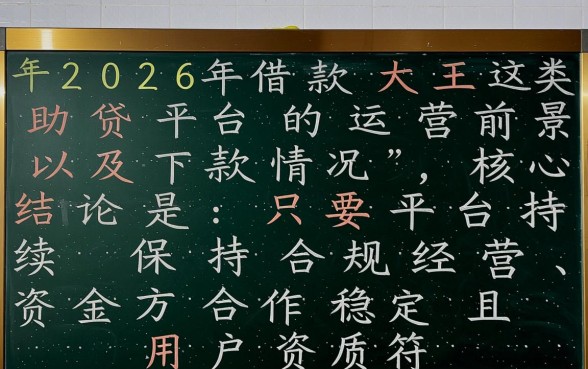 年2026年借款大王这类
助贷平台的运营前景
以及下款情况”，核心
结论是：只要平台持
续保持合规经营、
资金方合作稳定且
用户资质符